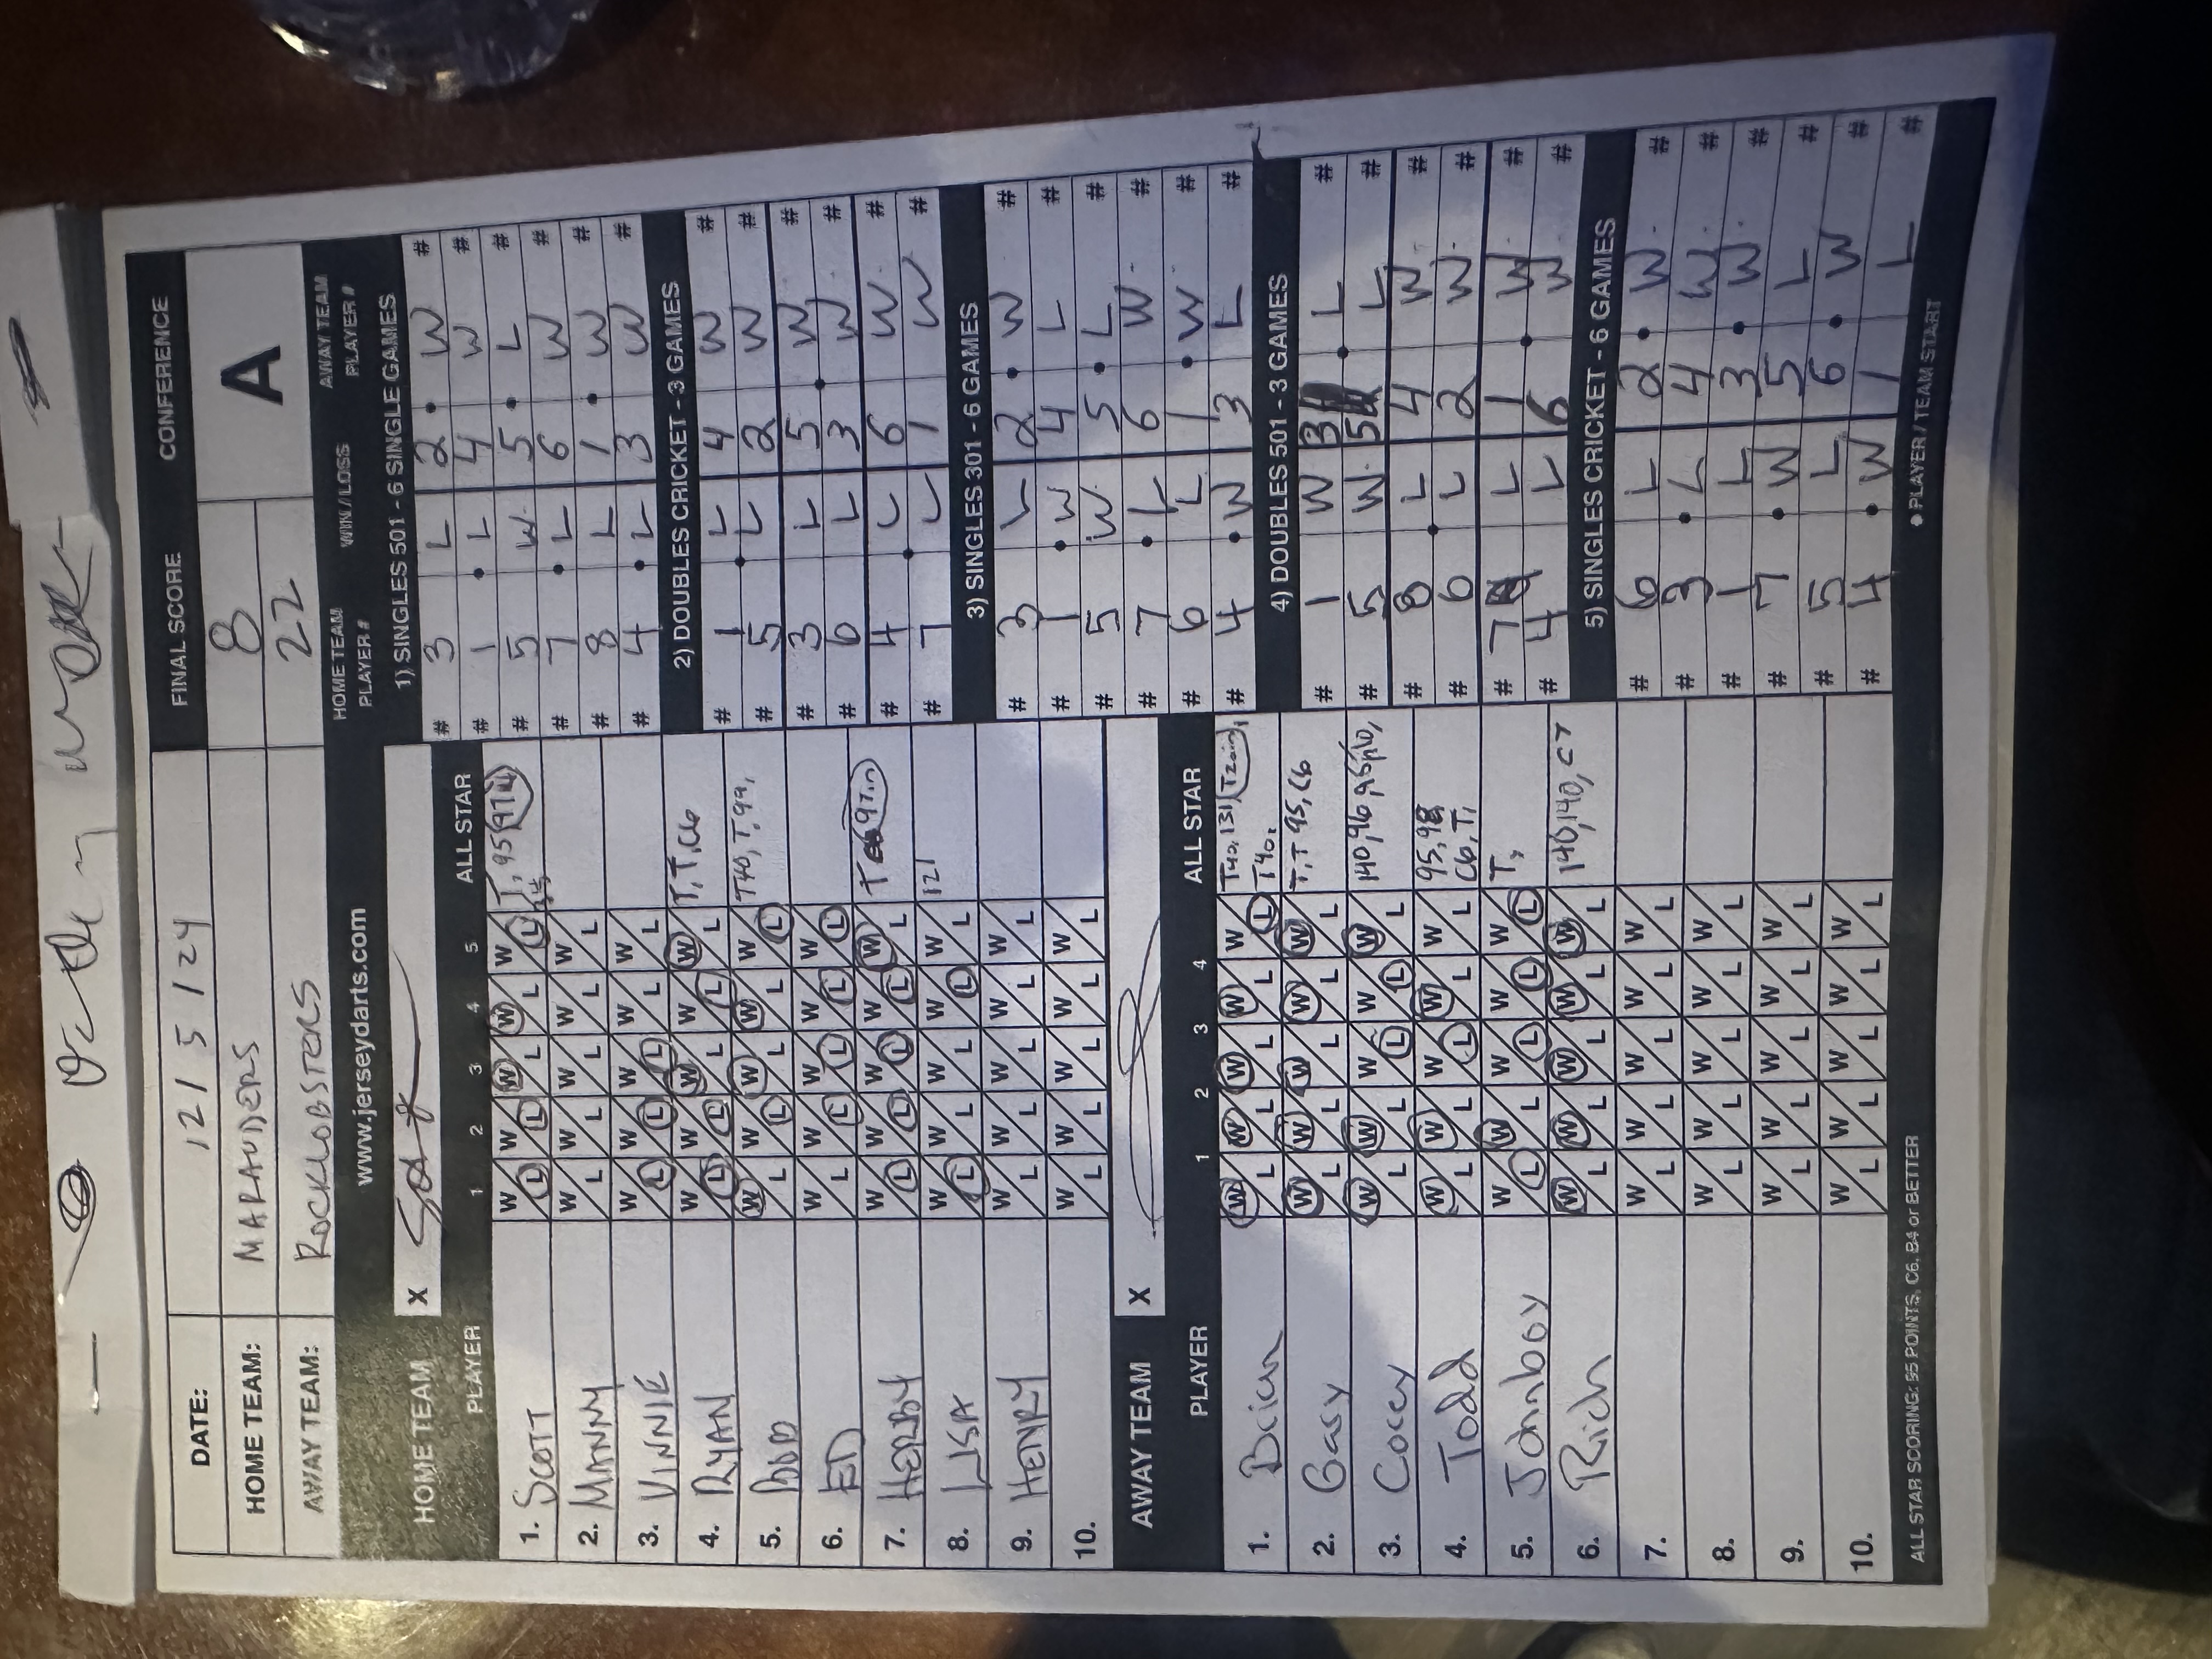 DATE: 12/5/24 FINAL SCORE CONFERENCE
HOME TEAM: MARAUDERS 8 A
AWAY TEAM: ROCKLOBSTERS 22
www.jerseydarts.com
HOME TEAM PLAYER # WIN/LOSS AWAY TEAM PLAYER #
HOME TEAM X
PLAYER 1 2 3 4 5 ALL STAR
1. SCOTT W L W L W L W L W L T, 95
2. MANNY W L W L W L W L W L
3. VINNIE W L W L W L W L W L
4. RYAN W L W L W L W L W L T, T, C6
5. W L W L W L W L W L T40, T, T, 99,
6. ED W L W L W L W L W L
7. HERBY W L W L W L W L W L T 97in
8. LISA W L W L W L W L W L 121
9. HENRY W L W L W L W L W L
10. W L W L W L W L W L
AWAY TEAM X
PLAYER 1 2 3 4 ALL STAR
1. Brian W L W L W L W L W L T40, 131,
T40,
2. Gary W L W L W L W L W L T, T 95, C6
3. Corey W L W L W L W L W L 140, 96,
4. Todd W L W L W L W L W L 95, 98
C6, T,
5. Johnboy W L W L W L W L W L T,
6. Rich W L W L W L W L W L 140, 140, C7
7. W L W L W L W L W L
8. W L W L W L W L W L
9. W L W L W L W L W L
10. W L W L W L W L W L
ALL STAR SCORING: 95 POINTS, C6, B4 or BETTER
1) SINGLES 501 - 6 SINGLE GAMES
# 3 L 2 • W #
# 1 • L 4 W #
# 5 W 5 • L #
# 7 • L 6 W #
# 8 L 1 • W #
# 4 • L 3 W #
2) DOUBLES CRICKET - 3 GAMES
# 1 L 4 W #
# 5 • L 2 W #
# 3 L 5 W #
# 6 L 3 • W #
# 4 L 6 W #
# 7 • L 1 W #
3) SINGLES 301 - 6 GAMES
# 3 L 2 • W #
# 1 • W 4 L #
# 5 W 5 • L #
# 7 • L 6 W #
# 6 L 1 • W #
# 4 • W 3 L #
4) DOUBLES 501 - 3 GAMES
# 1 W 3 L #
# 5 W 5 • L #
# 8 L 4 W #
# 6 • L 2 W #
# 7 L 1 W #
# 4 L 6 • W #
5) SINGLES CRICKET - 6 GAMES
# 6 L 2 • W #
# 3 • L 4 W #
# 1 L 3 • W #
# 7 • W 5 L #
# 5 L 6 • W #
# 4 • W 1 L #
• PLAYER / TEAM START